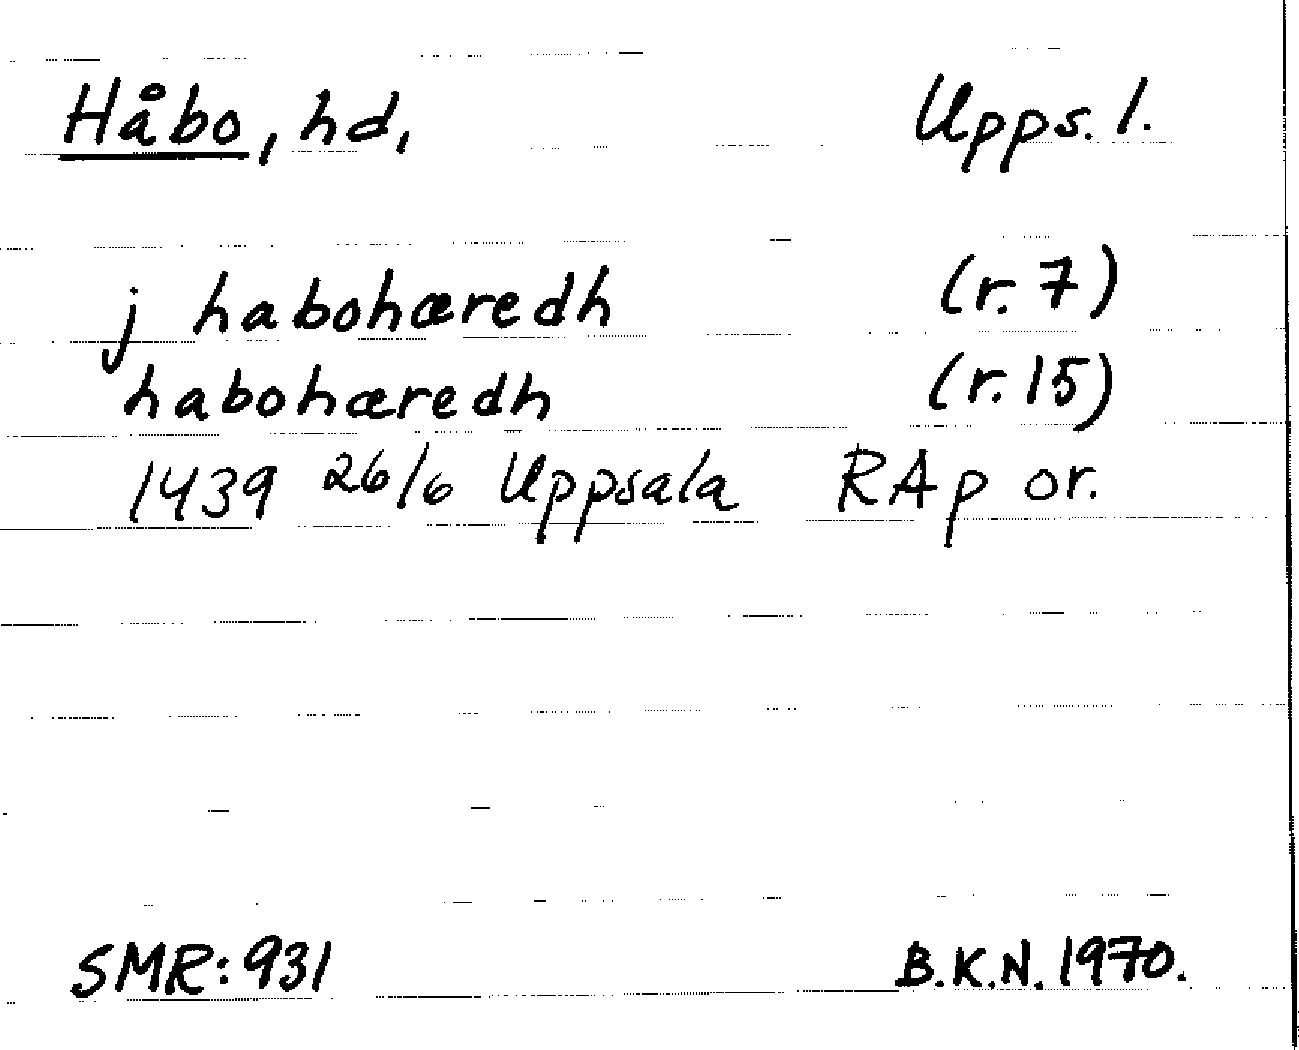 Håbo, hd, Upps. l.
j habohæredh (r. 7)
habohæredh (r. 15)
1439 26/6 Uppsala RAp or.
SMR: 931 B.K.N. 1970.